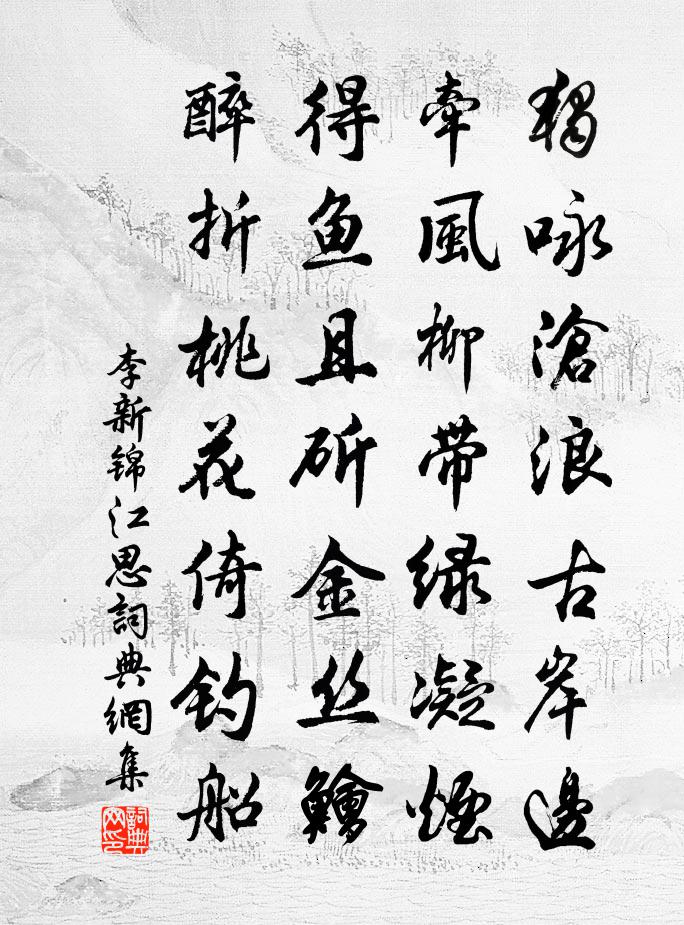 獨咏滄浪古岸邊
牽風柳帶綠凝煙
得鱼且斫金丝鱠
醉折桃花倚釣船
李新锦江思詞典網集
詞典
网印